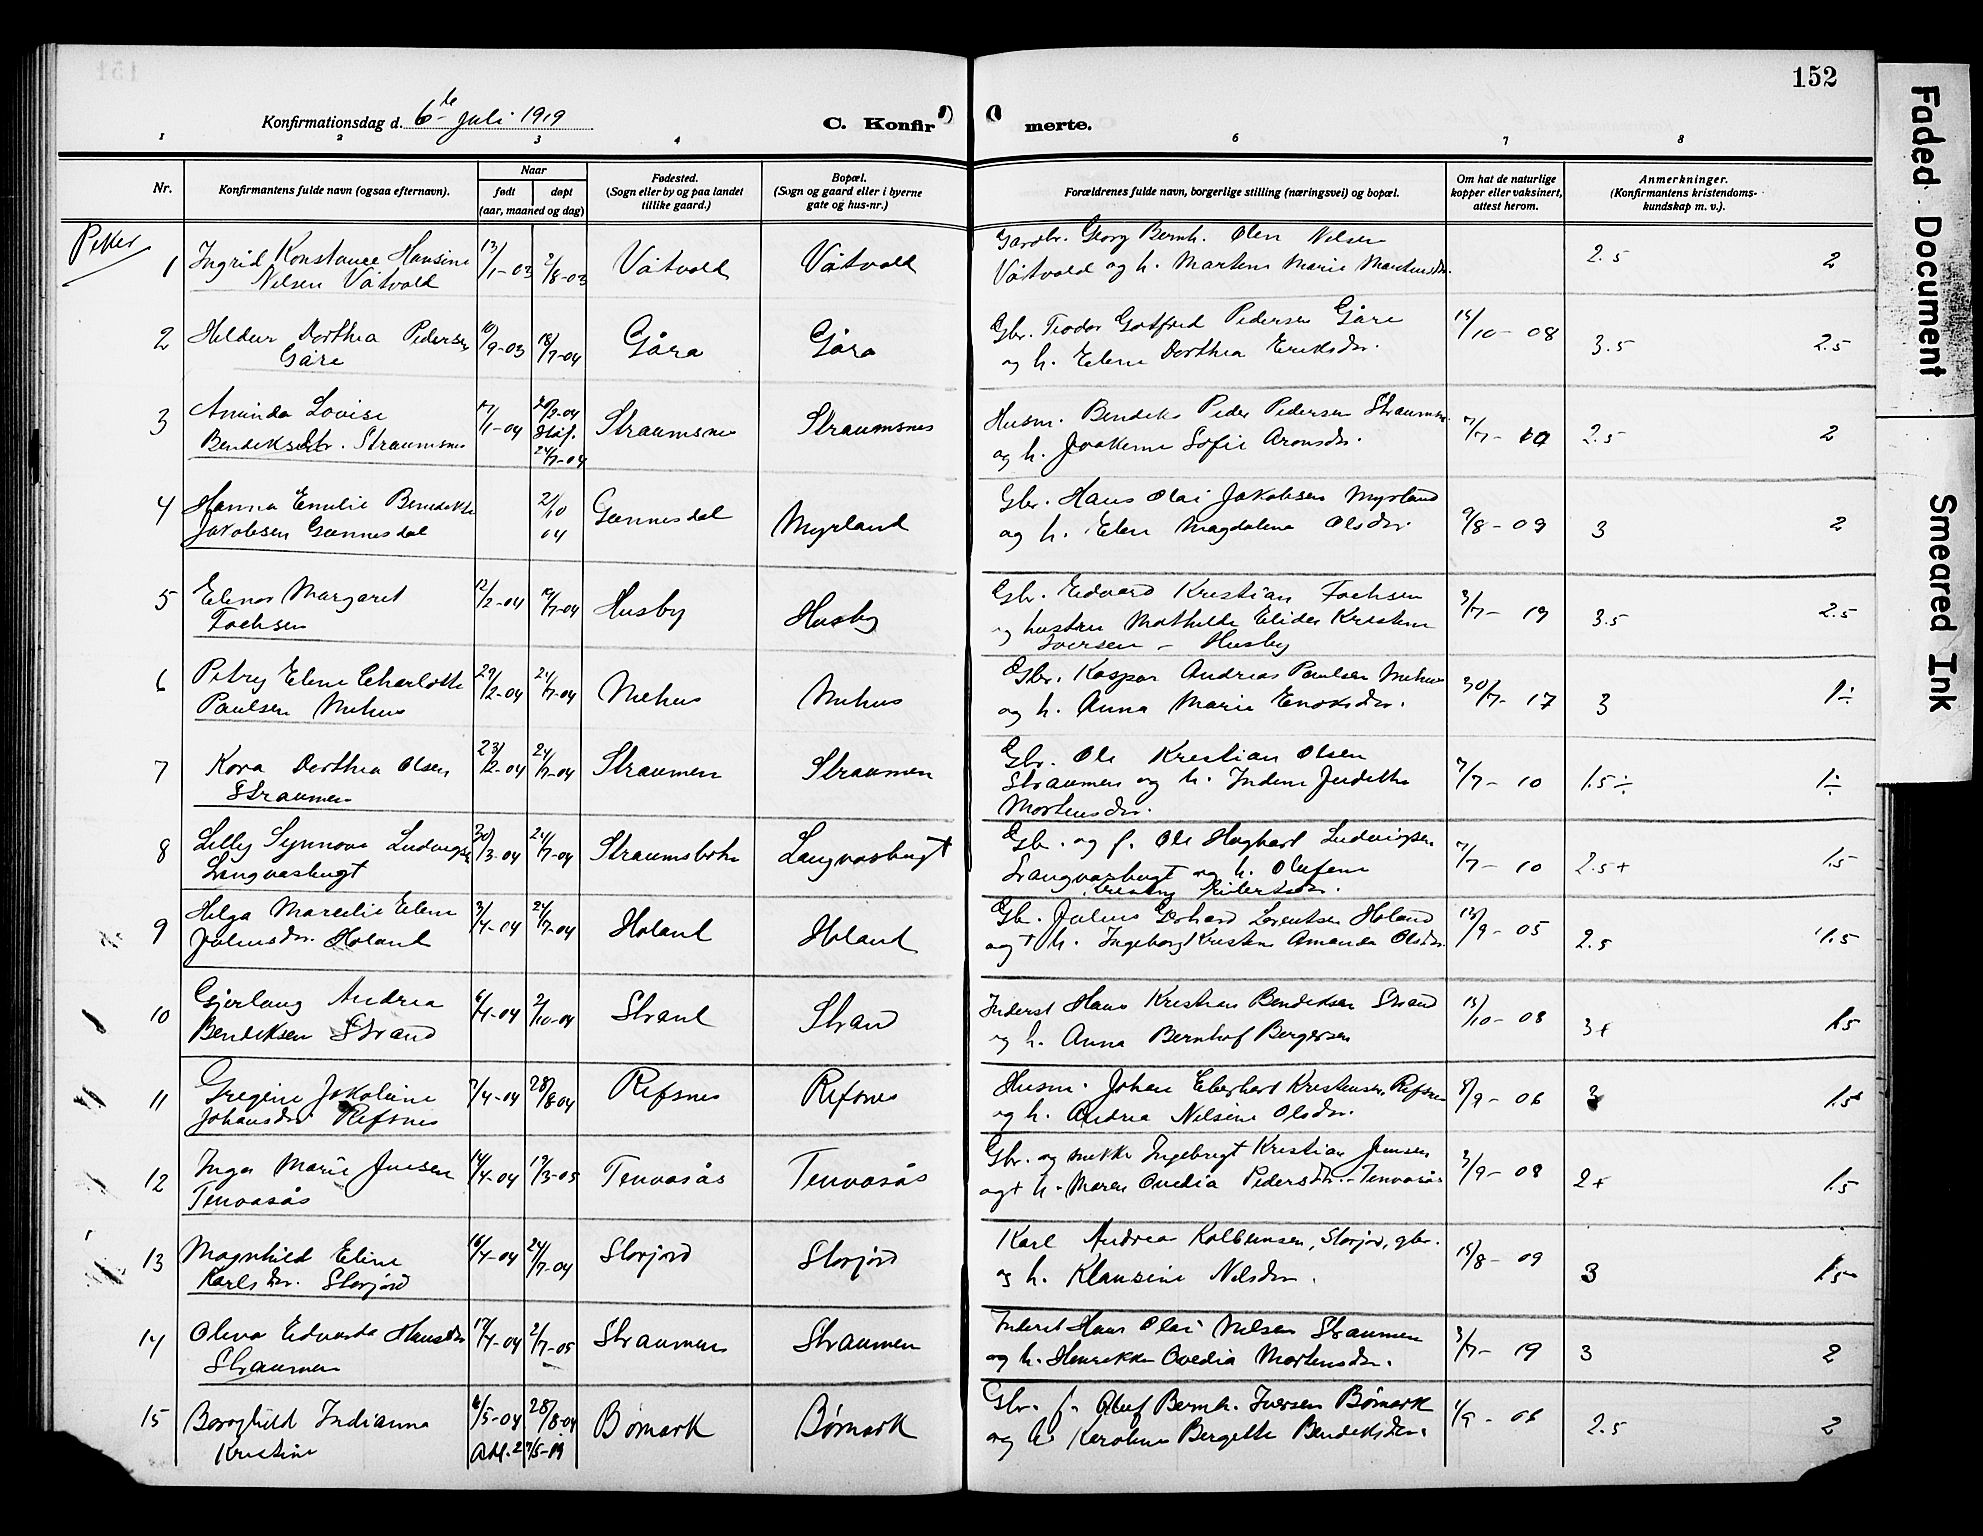 152
Konfirmationsdag d. 6te juli 1919
C. Konfir
merte.
1 2 3 4 6 7 8
Nr.
Konfirmantens fulde navn (ogsaa efternavn).
Naar
født
døpt
(aar, maaned og dag)
Fødested.
(Sogn eller by og paa landet
tillike gaard.)
Bopæl.
(Sogn og gaard eller i byerne
gate og hus-nr.)
Forældrenes fulde navn, borgerlige stilling (næringsvei) og bopæl.
Om hat de naturlige
kopper eller vaksinert,
attest herom.
Anmerkninger.
(Konfirmantens kristendoms-
kundskap m. v.).
Piker
1 Ingrid Konstance Hansine 13/1-03 2/8-03 Våtvold Våtvold Gaardbr. Georg Bernh. Olen Nilsen 2.5 2
Nilsen Våtvold Våtvold og h. Martens Marie Martensdr.
2 Hildur Dorthea Pedersen 10/9-03 18/7-04 Gåra Gåra Gbr. Teodor Gotfred Pedersen Gåre 15/10-08 3.5 2.5
Gåre og h. Elene Dorthea Eriksdr.
3 Aminda Lovise 17/1-04 20/2-04 Straumsnes Straumsnes Husm. Bendiks Peder Pedersen Straumsnes 7/7-10 2.5 2
Bendiksdtr. Straumsnes Ståf. 24/7-04 og h. Joakime Sofie Aronsdr.
4 Hanna Emilie Bendikte 2/10 04 Gannesdal Myrland Gbr. Hans Olai Jakobsen Myrland 9/8-09 3 2
Jakobsen Gannesdal og h. Elen Magdalena Olsdr.
5 Elenor Margaret 12/2-04 10/7-04 Husby Husby Gbr. Edvard Kristian Fochsen 3/7-19 3.5 2.5
Fochsen og hustru Mathilde Elides Kristine
Iversen - Husby
6 Petry Elene Charlotte 29/2-04 24/7-04 Mehus Mehus Gbr. Kaspar Andreas Paulsen Mehus 30/7-17 3 1÷
Paulsen Mehus og h. Anna Marie Enoksdr.
7 Kora Dorthea Olsen 23/2-04 24/7-04 Straumen Straumen Gbr. Ole Kristian Olsen 7/7-10 1.5÷ 1÷
Straumen Straumen og h. Indine Judithe
Mortensdr.
8 Lilly Synnøve Ludvigsen 30/3-04 24/7-04 Straumsbotn Langvasbugt Gbr. og f. Ole Haghart Ludvigsen 7/7-10 2.5+ 1.5
Langvasbugt Langvasbugt og h. Olufine
9 Helga Marcelie Elene 3/4-04 24/7-04 Holand Holand Gbr. Julius Edvard Lorentsen Holand 13/9-05 2.5 1.5
Juliusdr. Holand og + h. Ingeborg Kristine Amanda Olsdr.
10 Gjerlaug Andrea 6/4-04 2/10-04 Strand Strand Inderst Hans Kristian Bendiksen Strand 15/10-08 3+ 1.5
Bendiksen Strand og h. Anna Bernhof Bergersen
11 Gregine Jakobine 7/4-04 28/8-04 Refsnes Refsnes Husm. Johan Eberhart Kristensen Refsnes 8/9-06 3 1.5
Johansdr. Refsnes og h. Andrea Nilsine Olsdr.
12 Inga Marie Jensen 14/4-04 19/3-05 Tenvasås Tenvasås Gbr. og Ingebrigt Kristian Jensen 3/9-08 2+ 1.5
Tenvasås og + h. Maren Ovedia Pedersdr. - Tenvasås
13 Magnhild Eline 16/4-04 24/7-04 Storjord Storjord Karl Andrea Kolbensen, Storjord, gbr. 15/8-09 3 1.5
Karlsdr. Storjord og h. Klausine Nilsdr.
14 Oliva Edvarda Hansdr. 17/4-04 2/7-05 Straumen Straumen Inderst Hans Olai Nilsen Straumen 3/7-19 3 2
Straumen og h. Henrikke Ovedia Mortensdr.
15 Borghild Indianna 6/5-04 28/8-04 Bømark Bømark Gbr. f. Oluf Bernh. Iversen Bømark 1/9-06 2.5 2
Kristine og h. Karoline Bergitte Bendiksdr.
Faded Document
Smeared Ink